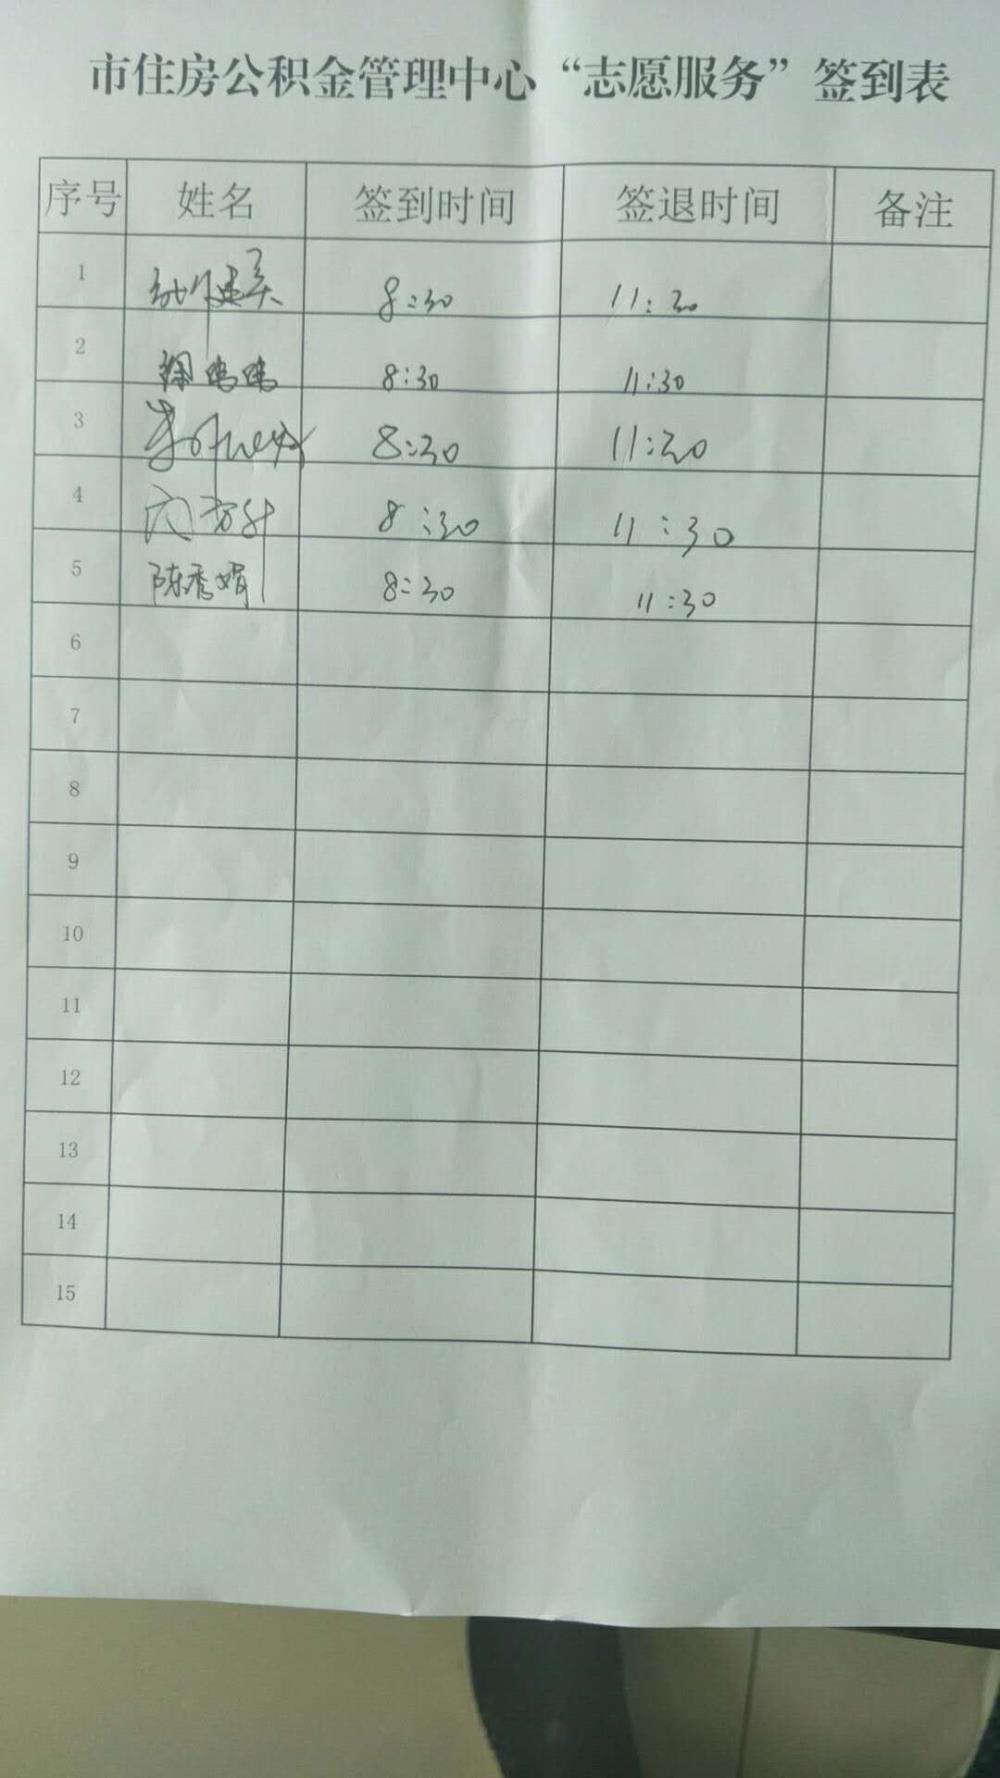 市住房公积金管理中心“志愿服务”签到表
序号 姓名 签到时间 签退时间 备注
1 8:30 11:30
2 8:30 11:30
3 8:30 11:30
4 8:30 11:30
5 陈秀娟 8:30 11:30
6
7
8
9
10
11
12
13
14
15